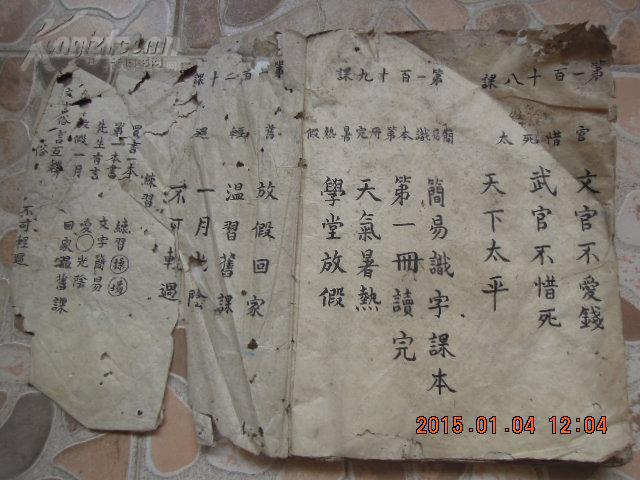 第一百十八課
官惜死太
文官不愛錢
武官不惜死
天下太平
第一百十九課
簡易識本第冊完暑熱假
簡易識字課本
第一冊讀完
天氣暑熱
學堂放假
第一百二十課
舊經過
放假回家
溫習舊課
一月光陰
不可輕過
練習
買書一本
第一本書
先生有言
放假一月
文言俗言互釋
練習操場
文字簡易
愛○光陰
回家溫舊課
不可輕過
Kongfz.com
2015.01.04 12:04